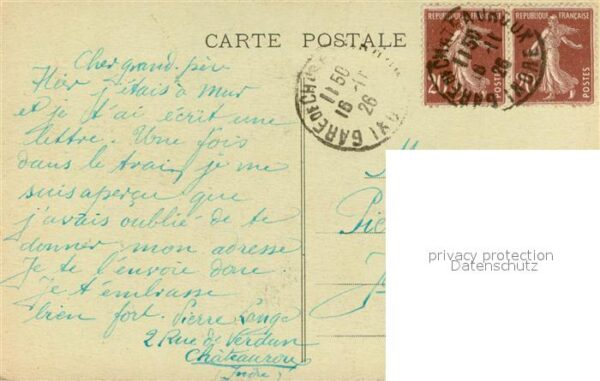 CARTE POSTALE
REPUBLIQUE FRANÇAISE
POSTES
REPUBLIQUE FRANÇAISE
POSTES
GARE DE CH
11 50
16 - 11
26
11 50
16 - 11
26
INDRE
Cher grand-père
Hier j'étais à Mur
et je t'ai écrit une
lettre. Une fois
dans le train, je me
suis aperçu que
j'avais oublié de te
donner mon adresse
Je te l'envoie donc
Je t'embrasse
bien fort. Pierre Lange
2 Rue de Verdun
Châteauroux
(Indre)
Pie
privacy protection
Datenschutz